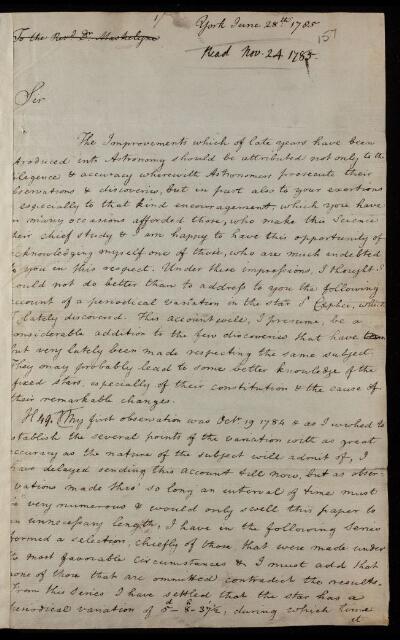 York June 28th 1785
To the Revd Dr. Maskelyne
15
Read Nov. 24 1785.
Sir
The Improvements which of late years have been
troduced into Astronomy should be attributed not only to the
iligence & accuracy wherewith Astronomers prosecute their
bservations & discoveries, but in part also to your exertions
especially to that kind encouragement, which you have
n many occasions afforded those, who make this Science
heir chief study & I am happy to have this opportunity of
cknowledging myself one of those, who are much indebted
o you in this respect. Under these impressions, I thought I
ould not do better than to address to you the following
ccount of a periodical variation in the star δ Cephei, which
I lately discovered. This account will, I presume, be a
onsiderable addition to the few discoveries that have
but very lately been made respecting the same subject.
They may probably lead to some better knowledge of the
fixed stars, especially of their constitution & the cause of
their remarkable changes.
H49. My first observation was Octr. 19 1784 & as I wished to
stablish the several points of the variation with as great
ccuracy as the nature of the subject will admit of, I
have delayed sending this account till now, but as obser-
vations made thro' so long an interval of time must
be very numerous & would only swell this paper to
an unnecessary length, I have in the following Series
formed a selection, chiefly of those that were made under
the most favorable circumstances & I must add that
none of those that are ommitted contradict the results.
From this Series I have settled that the star has a
periodical variation of 5d-8h-37½', during which time
it